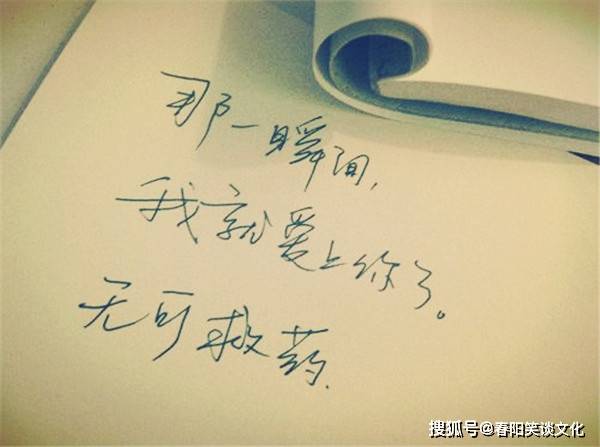 那一瞬间,
我就爱上你了。
无可救药.
搜狐号@春阳笑谈文化